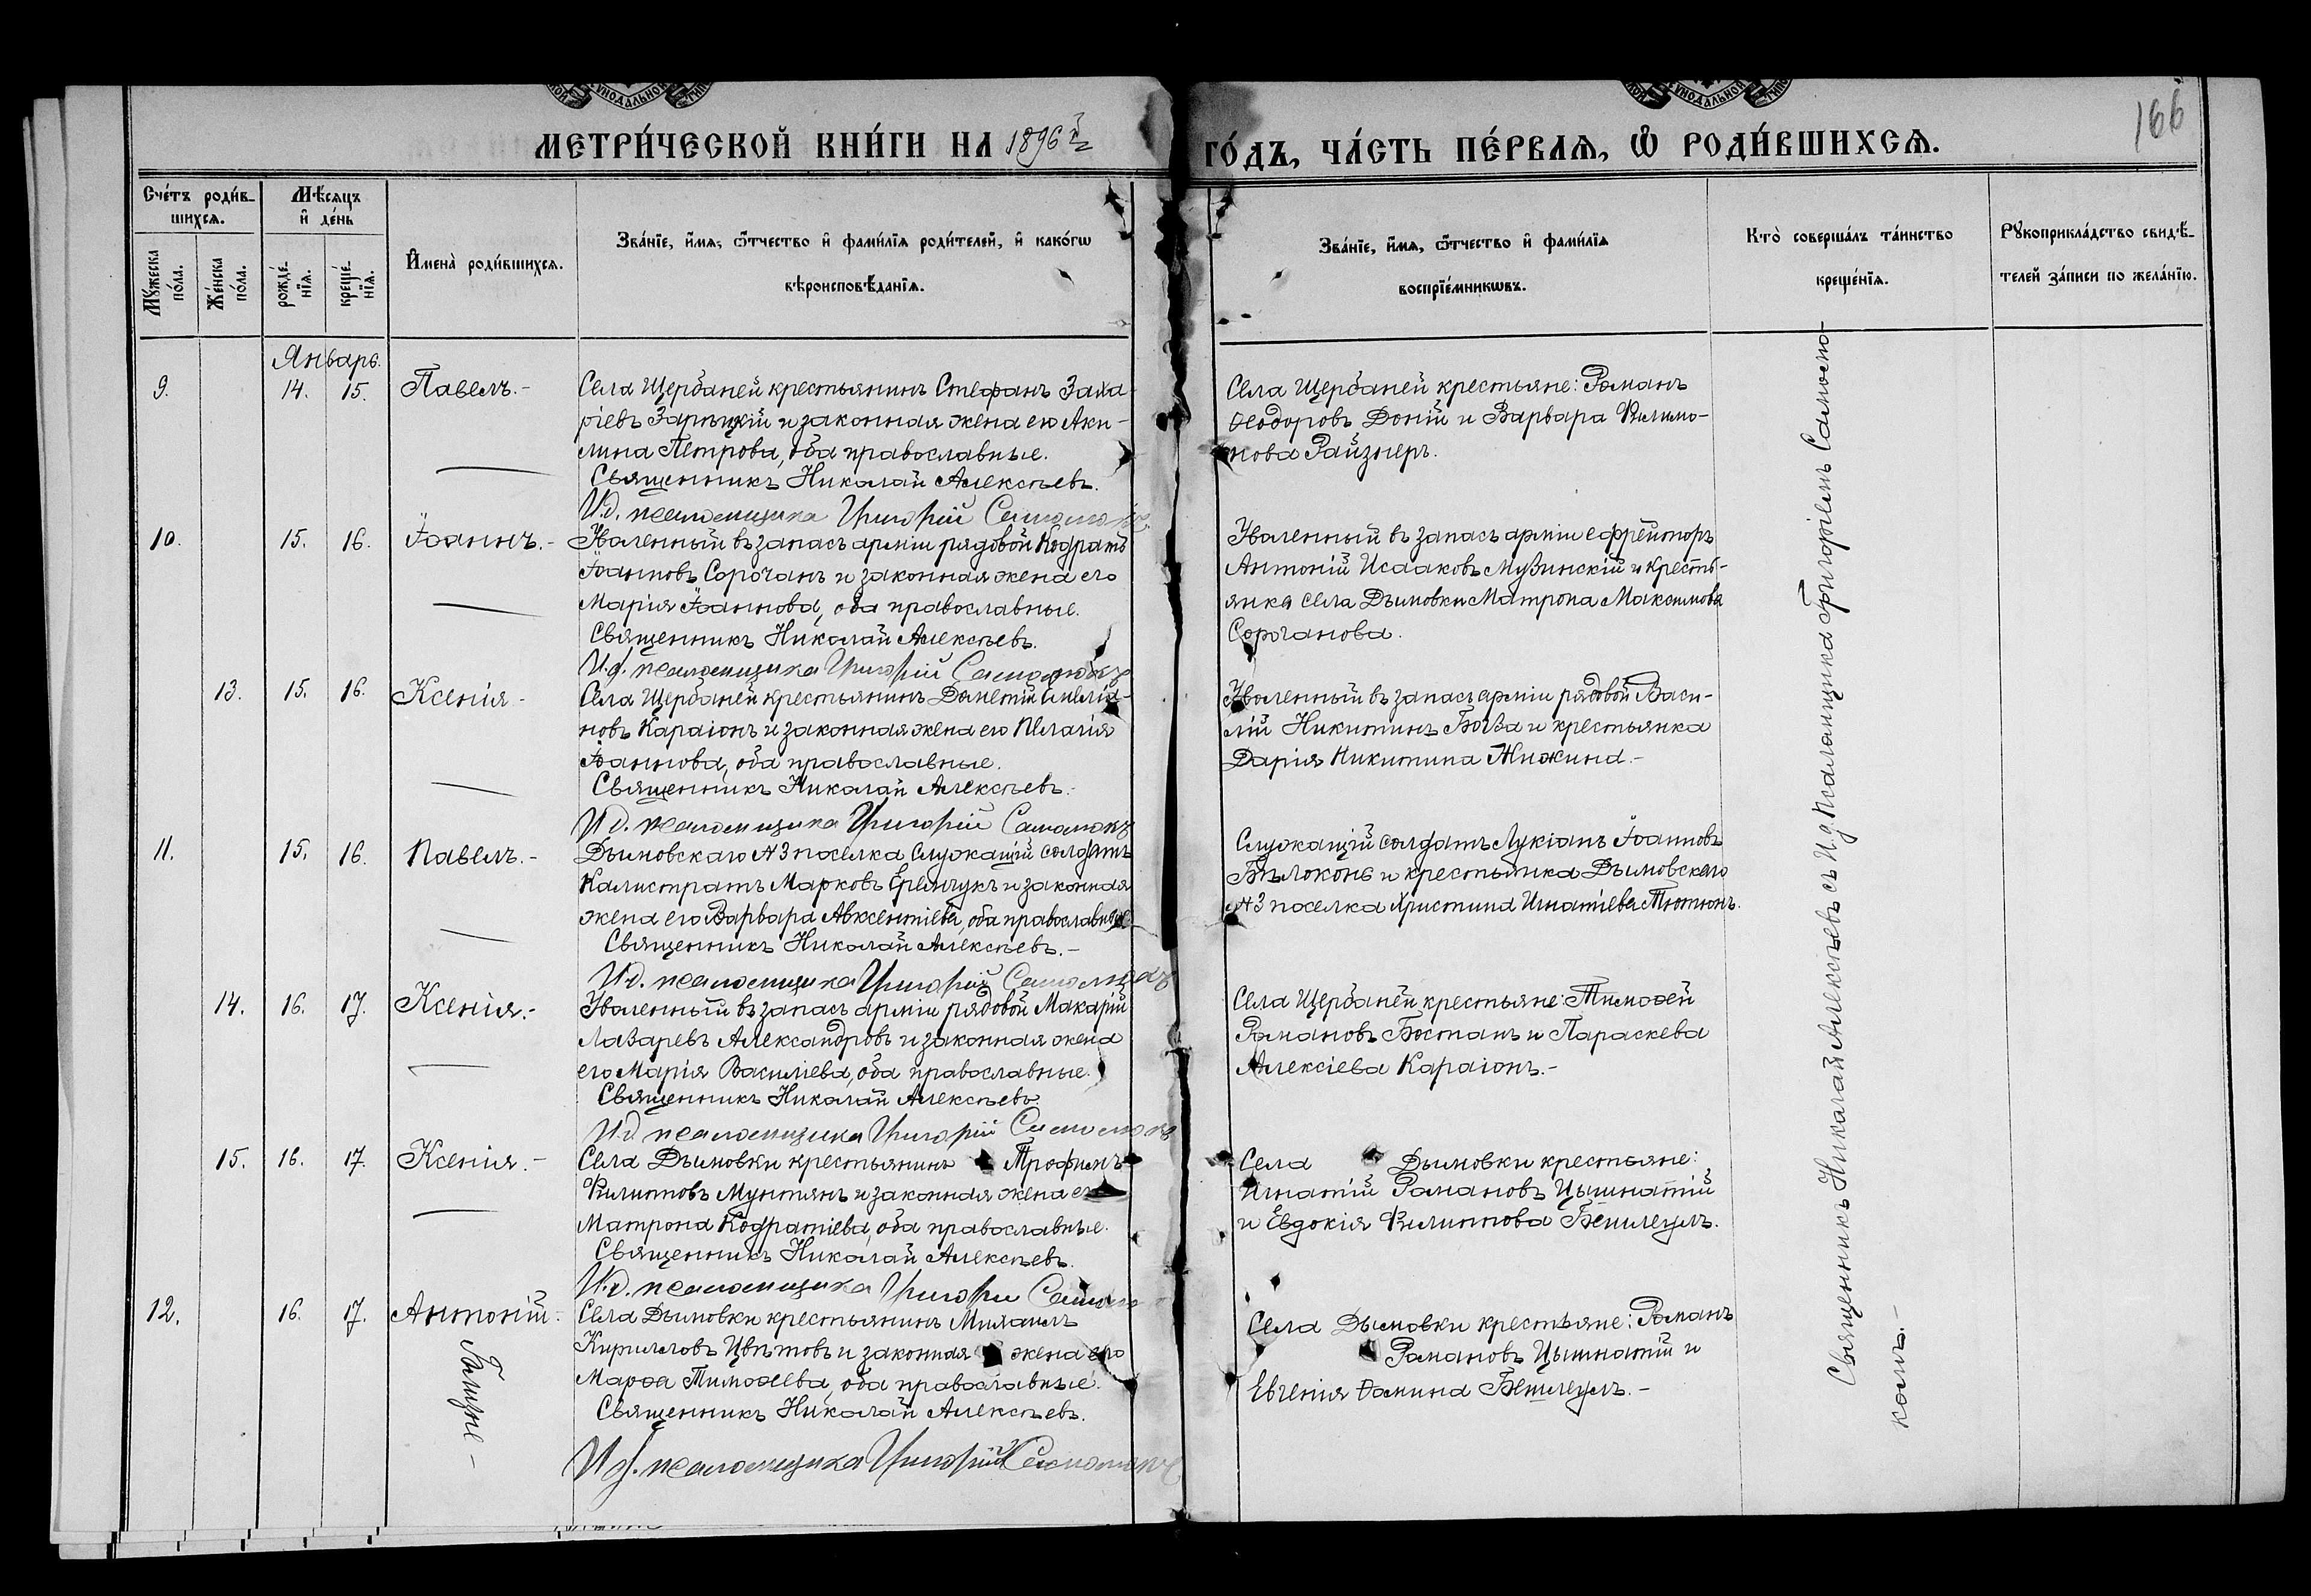 МЕТРИ́ЧЕСКОЙ КНИ́ГИ НА 1896й
ГО́ДЪ, ЧА́СТЬ ПЕ́РВАѦ, Ѡ҆ РОДИ́ВШИХСѦ.
166
Сче́тъ роди́в-
шихсѧ.
Мѣ́сѧцъ
и҆ де́нь
Мꙋ́жеска
по́ла.
Же́нска
по́ла.
рожде́-
нїѧ.
креще́-
нїѧ.
И҆мена̀ роди́вшихсѧ.
Зва́нїе, и҆́мѧ, ѻ҆́тчество и҆ фами́лїѧ роди́телей, и҆ како́гѡ
вѣроисповѣ́данїѧ.
Зва́нїе, и҆́мѧ, ѻ҆́тчество и҆ фами́лїѧ
воспрїе́мникѡвъ.
Кто̀ соверша́лъ та́инство
креще́нїѧ.
Рꙋкоприкла́дство свидѣ́-
телей за́писи по жела́нїю.
Январь.
9. 14. 15. Павелъ.-
Села Щербаней крестьянинъ Стефанъ Заха-
ріевъ Зарицкій и законная жена его Аки-
лина Петрова, оба православные.
Священникъ Николай Алексѣевъ.
И.д. псаломщика Григорій
Села Щербаней крестьяне: Романъ
Ѳеодоровъ Доній и Варвара Филимо-
нова Райзнеръ.
10. 15. 16. Іоаннъ.-
Уволенный въ запасъ арміи рядовой Кодратъ
Іоанновъ Сорочанъ и законная жена его
Марія Іоаннова, оба православные.
Священникъ Николай Алексѣевъ.
И.д. псаломщика Григорій
Уволенный въ запасъ арміи ефрейторъ
Антоній Исааковъ Музинскій и кресть-
янка села Дымовки Матрона Максимова
Сорочанова.
13. 15. 16. Ксенія-
Села Щербаней крестьянинъ Дометій Емелiа-
новъ Караіонъ и законная жена его Пелагія
Іоаннова, оба православные.
Священникъ Николай Алексѣевъ.-
И.д. псаломщика Григорій
Уволенный въ запасъ арміи рядовой Васи-
лій Никитинъ и крестьянка
Дарія Никитина Жижина.-
11. 15. 16. Павелъ.-
Дымовскаго №3 поселка служащій солдатъ
Калистратъ Марковъ Еремчукъ и законная
жена его Варвара Авксентіева, оба православные
Священникъ Николай Алексѣевъ.-
И.д. псаломщика Григорій
Служащій солдатъ Лукіанъ Іоанновъ
Бѣлоконь и крестьянка Дымовскаго
№3 поселка Христина Игнатіева Тютюнъ.
14. 16. 17. Ксенія.-
Уволенный въ запасъ арміи рядовой Макарій
Лазаревъ Александровъ и законная жена
его Марія Василіева, оба православные.
Священникъ Николай Алексѣевъ
И.д. псаломщика Григорій
Села Щербаней крестьяне: Тимоѳей
Романовъ Бостанъ и Параскева
Алексіева Караіонъ.-
15. 16. 17. Ксенія.-
Села Дымовки крестьянинъ Трофимъ
Филиповъ Мунтянъ и законная жена его
Матрона Кодратіева, оба православные.
Священникъ Николай Алексѣевъ.
И.д. псаломщика Григорій
Села Дымовки крестьяне:
Игнатій Романовъ Цышнатій
и Евдокія Филиппова Бешлеулъ.
12. 16. 17. Антоній-
Села Дымовки крестьянинъ Михаилъ
Кирилловъ Цвѣтовъ и законная жена его
Марѳа Тимоѳеева, оба православные.
Священникъ Николай Алексѣевъ.
И.д. псаломщика Григорій
Села Дымовки крестьяне: Романъ
Романовъ Цышнатій и
Евгенія Ѳомина Бешлеулъ.-
Священникъ Николай Алексѣевъ съ И.д. Псаломщика Григоріемъ Самолю-
комъ.-